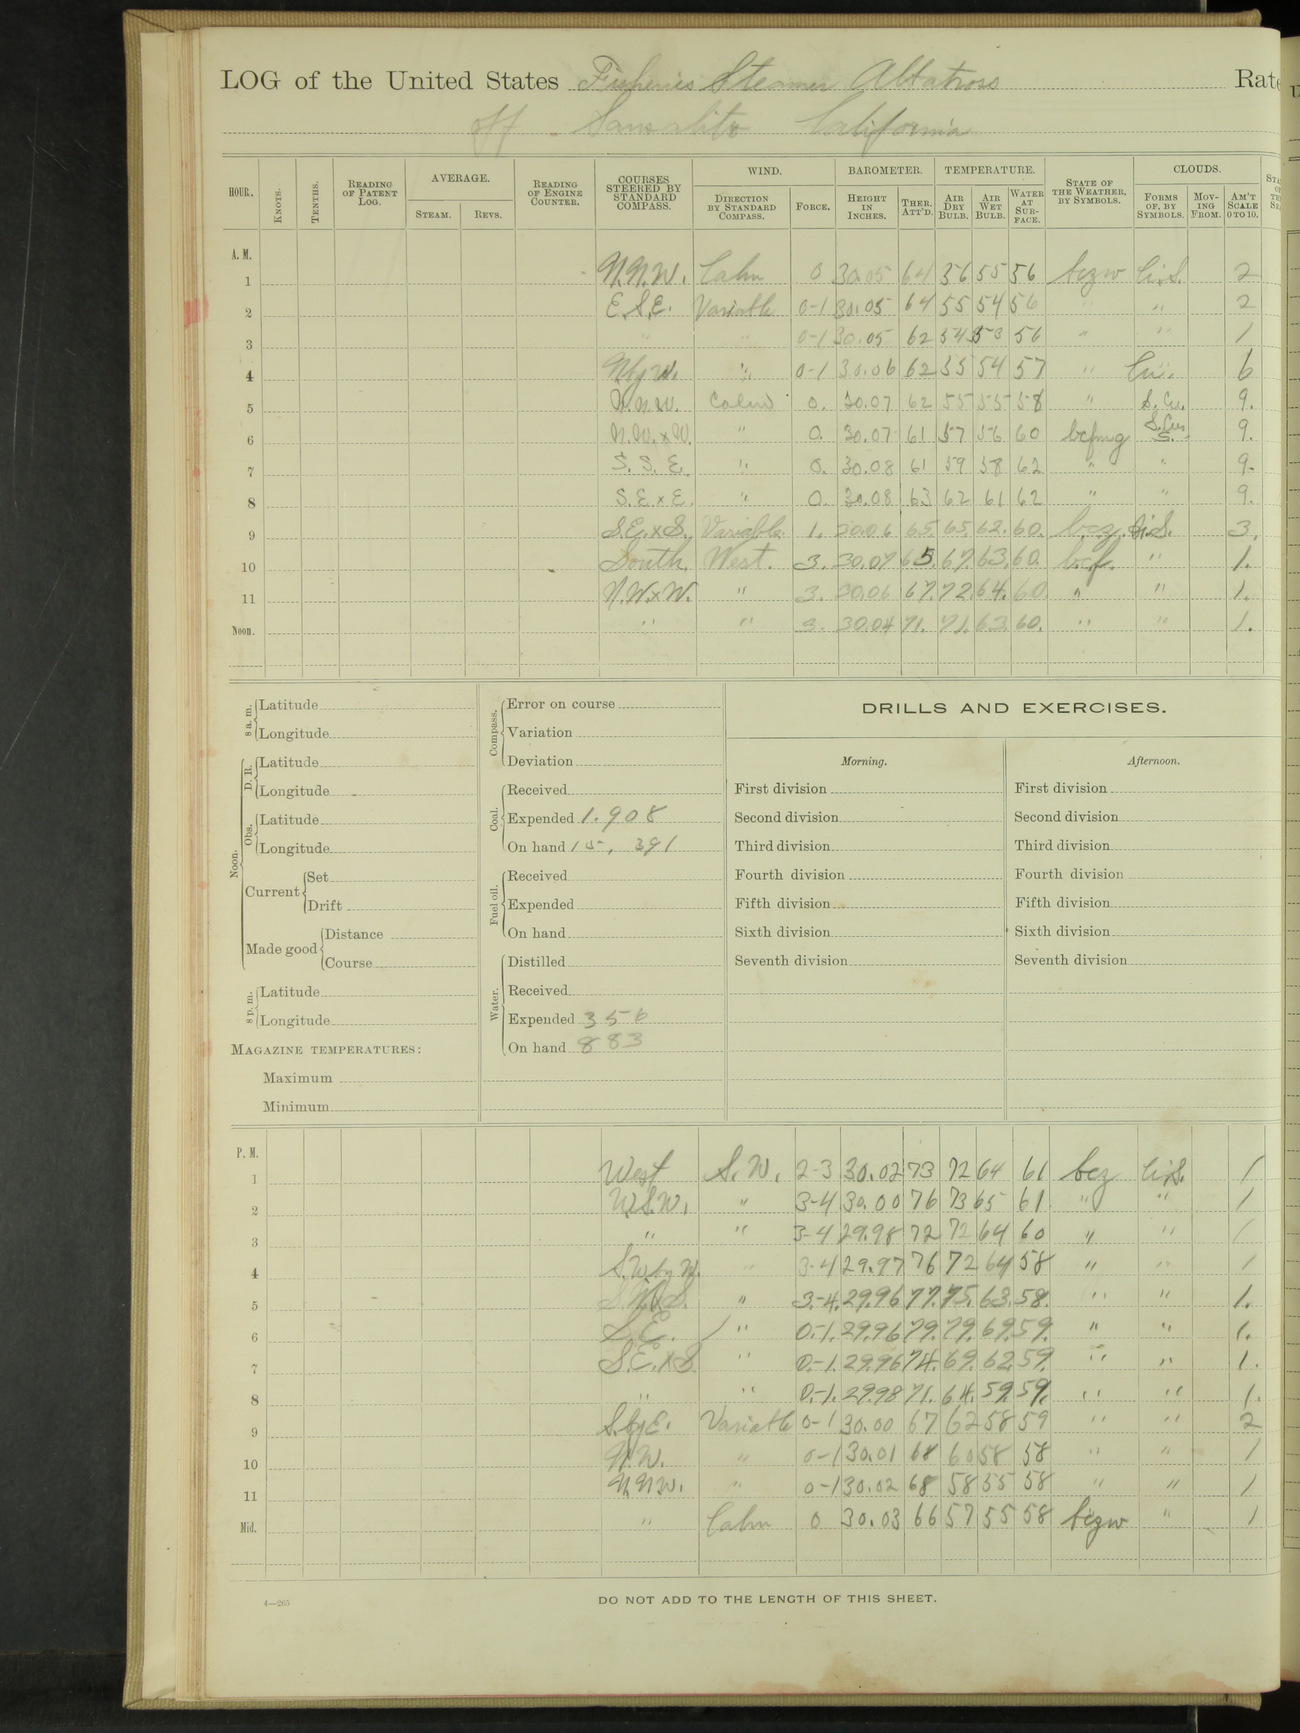 LOG of the United States Fisheries Steamer Albatross Rate
off Sausalito California
HOUR. KNOTS. TENTHS. READING OF PATENT LOG. AVERAGE. STEAM. REVS. READING OF ENGINE COUNTER. COURSES STEERED BY STANDARD COMPASS. WIND. DIRECTION BY STANDARD COMPASS. FORCE. BAROMETER. HEIGHT IN INCHES. THER. ATT'D. TEMPERATURE. AIR DRY BULB. AIR WET BULB. WATER AT SURFACE. STATE OF THE WEATHER, BY SYMBOLS. CLOUDS. FORMS OF, BY SYMBOLS. MOVING FROM. AM'T SCALE 0 TO 10.
A. M.
1 N.N.W. Calm 0 30.05 64 56 55 56 bczw Ci.S. 2
2 E.S.E. Variable 0-1 30.05 64 55 54 56 " " 2
3 " " 0-1 30.05 62 54 53 56 " " 1
4 N by W. " 0-1 30.06 62 55 54 57 " Cu. 6
5 N.N.W. Calm 0. 30.07 62 55 55 58 " S.Cu. 9.
6 N.W.xW. " 0. 30.07 61 57 56 60 bcfmg S.Cu. S. 9.
7 S.S.E. " 0. 30.08 61 59 58 62 " " 9.
8 S.E.xE. " 0. 30.08 63 62 61 62 " " 9.
9 S.E.xS. Variable. 1. 30.06 65. 65. 62. 60. bcz. Ci.S. 3.
10 South. West. 3. 30.07 65. 67. 63. 60. " 1.
11 N.W.xW. " 3. 30.06 67. 72. 64. 60. " " 1.
Noon. " " 3. 30.04 71. 71. 63. 60. " " 1.
8 a. m. Latitude
Longitude
Noon. D. R. Latitude
Longitude
Obs. Latitude
Longitude
Current Set
Drift
Made good Distance
Course
8 p. m. Latitude
Longitude
MAGAZINE TEMPERATURES:
Maximum
Minimum
Compass. Error on course
Variation
Deviation
Coal. Received
Expended 1.908
On hand 15, 391
Fuel oil. Received
Expended
On hand
Water. Distilled
Received
Expended 356
On hand 883
DRILLS AND EXERCISES.
Morning. Afternoon.
First division First division
Second division Second division
Third division Third division
Fourth division Fourth division
Fifth division Fifth division
Sixth division Sixth division
Seventh division Seventh division
P. M.
1 West S.W. 2-3 30.02 73 72 64 61 bcz Ci.S. 1
2 W.S.W. " 3-4 30.00 76 73 65 61 " " 1
3 " " 3-4 29.98 72 72 64 60 " " 1
4 S.W. by W. " 3-4 29.97 76 72 64 58 " " 1
5 " 3-4. 29.96 77. 75. 63. 58. " " 1.
6 S.E. " 0.-1. 29.96 79. 79. 69. 59. " " 1.
7 S.E.xS " 0.-1. 29.96 74. 69. 62. 59. " " 1.
8 " " 0.-1. 29.98 71. 64. 59. 59. " " 1.
9 S. by E. Variable 0-1 30.00 67 62 58 59 " " 2
10 N.W. " 0-1 30.01 68 60 58 58 " " 1
11 N.N.W. " 0-1 30.02 68 58 55 58 " " 1
Mid. " Calm 0 30.03 66 57 55 58 bczw " 1
4—265
DO NOT ADD TO THE LENGTH OF THIS SHEET.